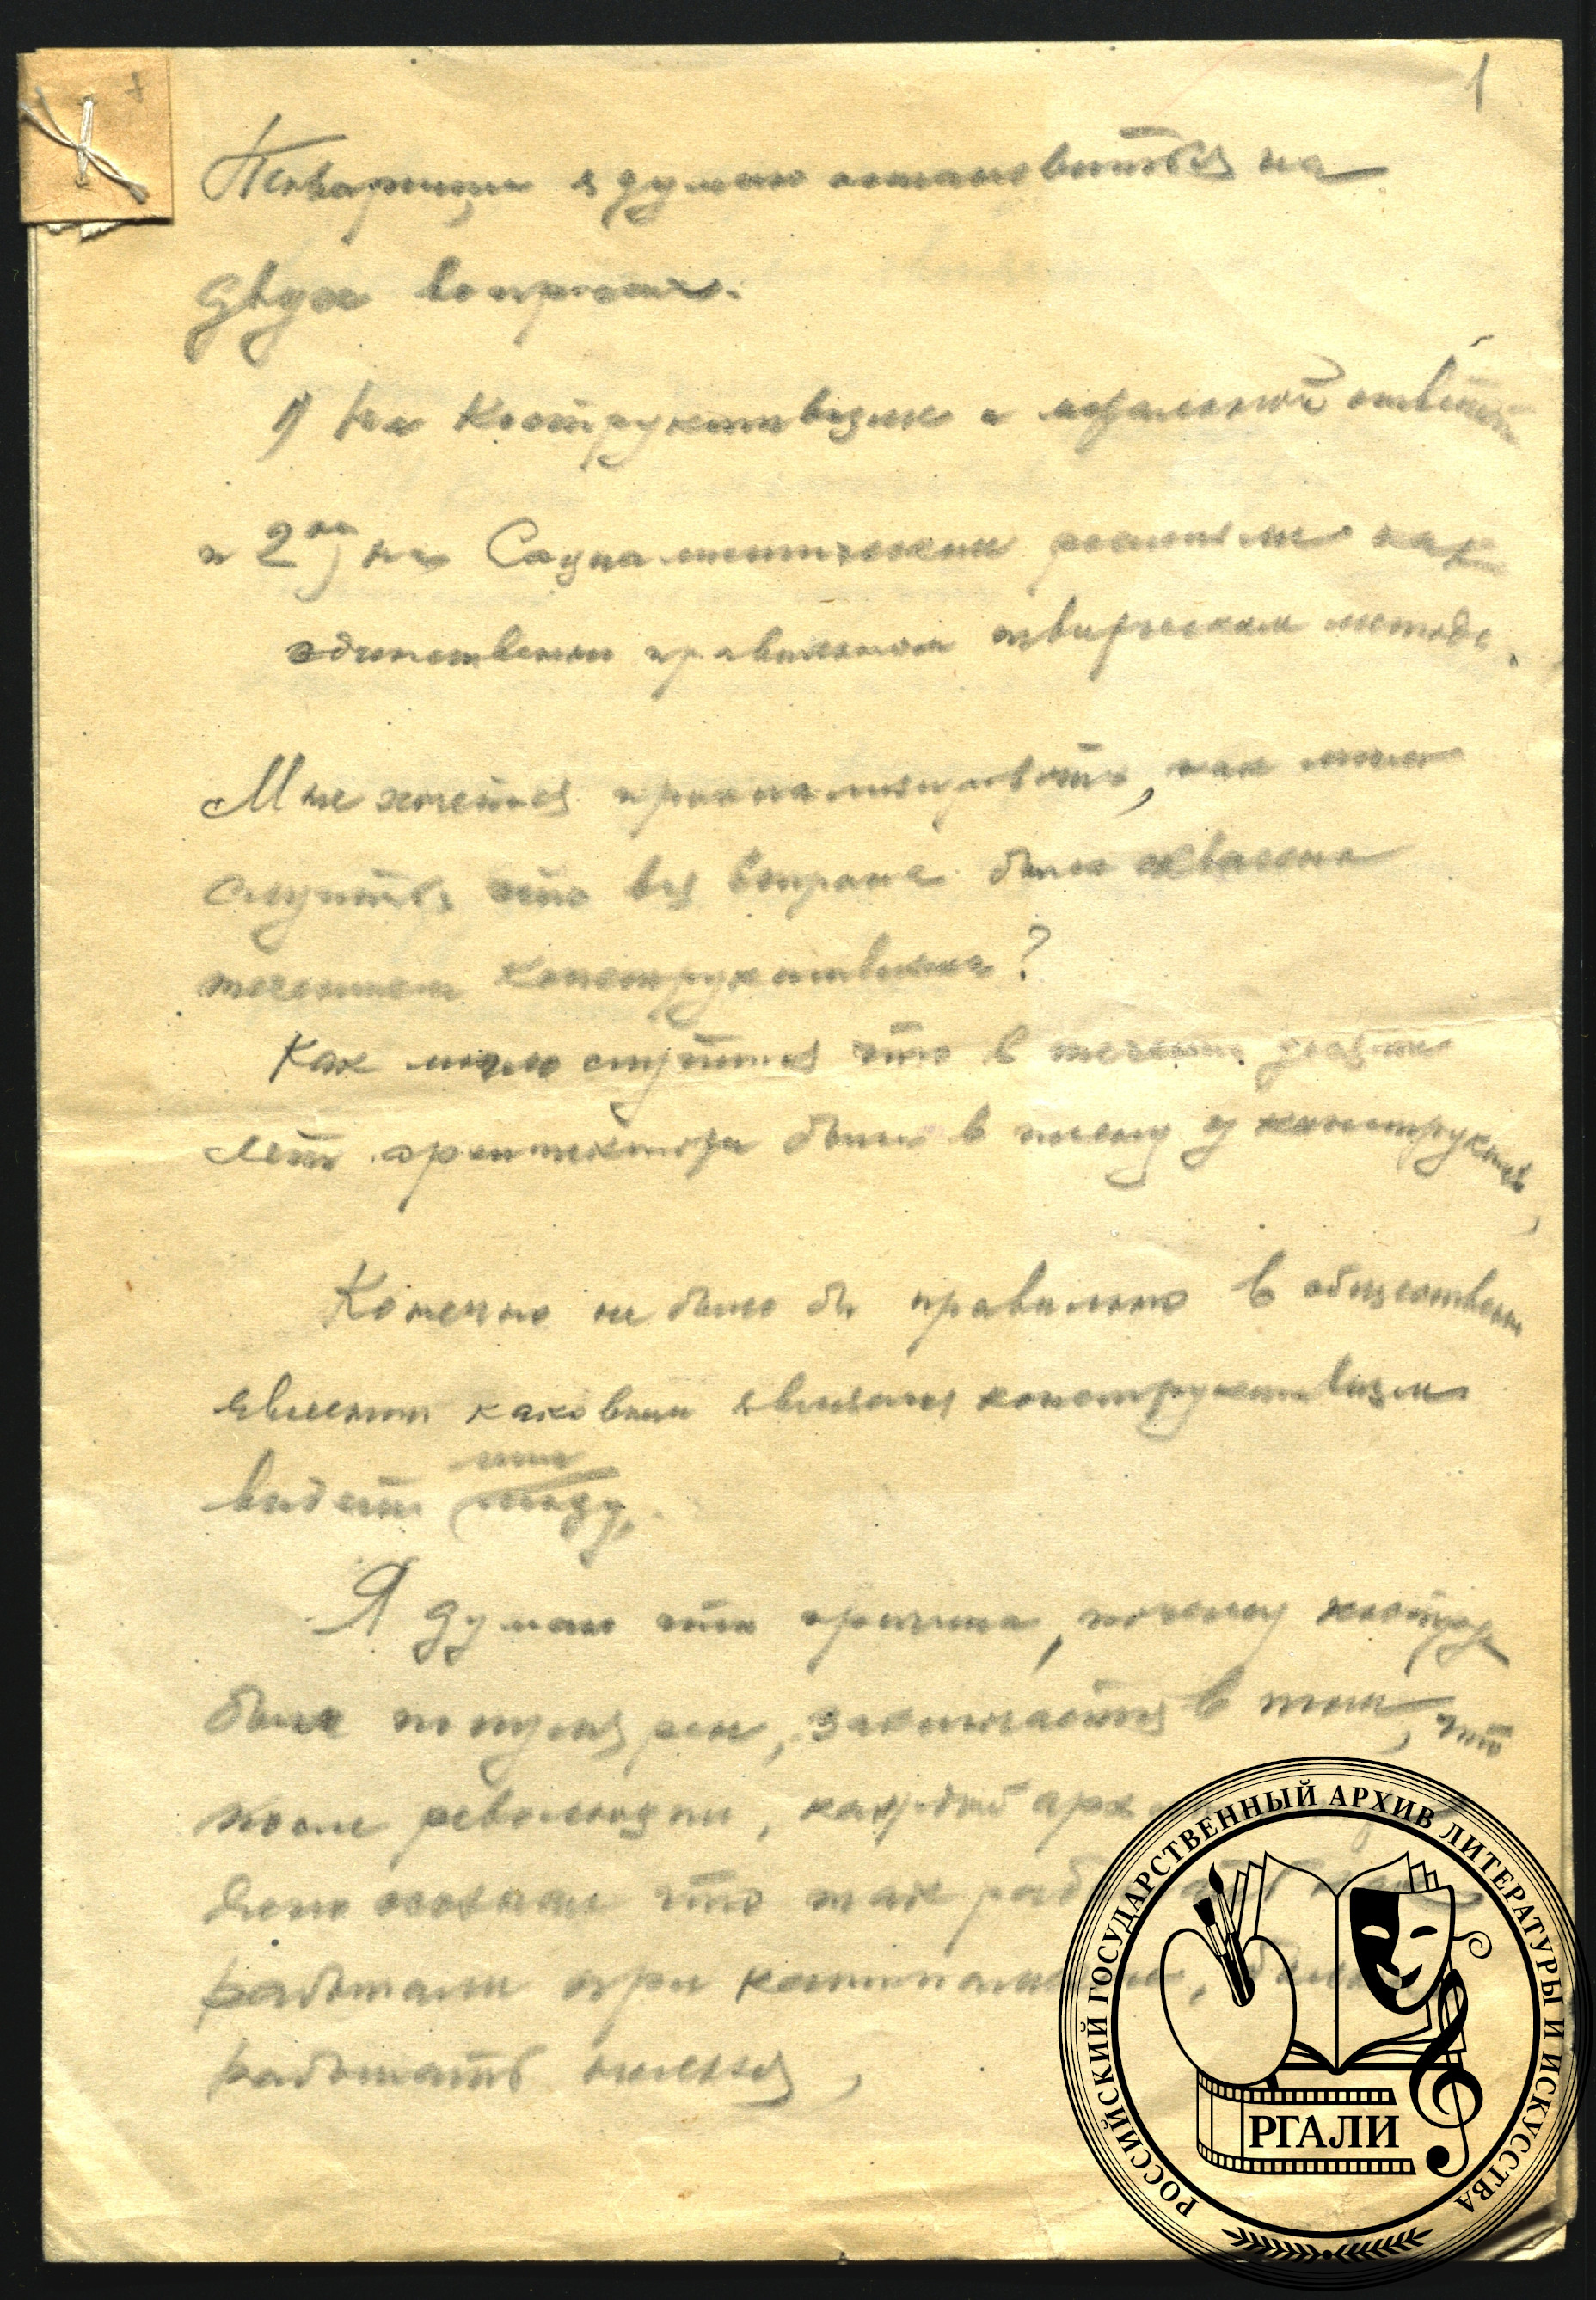 1
Товарищи я думаю остановиться на
двух вопросах.
1) На Конструктивизме и
и 2ое) на Социалистическом реализме как
единственном правильном творческом методе.
Мне хочется проанализировать, как могло
случиться что вся была охвачена
течением конструктивизма?
Как могло случиться что в течении
лет архитектора были в плену у
Конечно не было бы правильно в обществен
явлении каковым являлся конструктивизм
видеть моду.
Я думаю что причина, почему
был популярен, заключается в том, что
после революции, каждый арх
ясно осознал что так раб
работали при капитализме,
работать нельзя,
РОССИЙСКИЙ ГОСУДАРСТВЕННЫЙ АРХИВ ЛИТЕРАТУРЫ И ИСКУССТВА
РГАЛИ